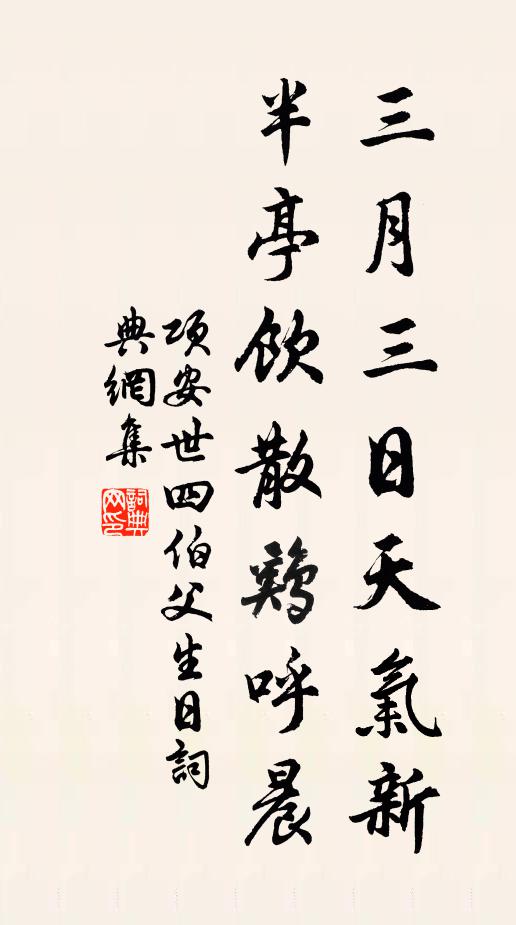 三月三日天氣新
半亭飲散鷄呼晨
項安世四伯父生日詞
典網集
詞典網印